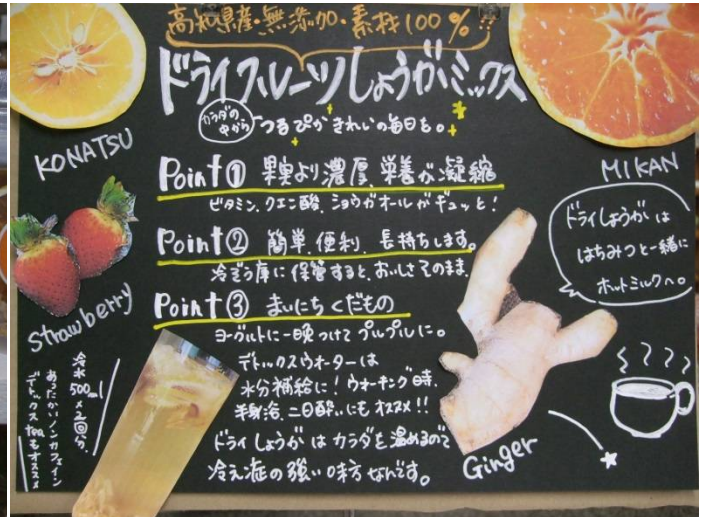 高知県産・無添加・素材100%!!
ドライフルーツしょうがミックス
カラダの
中から
つるぴかきれいの毎日を。
KONATSU
MIKAN
Point① 果実より濃厚、栄養が凝縮
ビタミン、クエン酸、ショウガオールがギュッと!
Point② 簡単、便利、長持ちします。
冷ぞう庫に保管すると、おいしさそのまま。
Point③ まいにちくだもの
ヨーグルトに一晩つけてプルプルに。
デトックスウオーターは
水分補給に!ウオーキング時、
半身浴、二日酔いにもオススメ!!
ドライしょうがはカラダを温めるので
冷え症の強い味方なんです。
ドライしょうがは
はちみつと一緒に
ホットミルクへ。
Strawberry
冷水500ml×2回分。
あったかいノンカフェイン
デトックスteaもオススメ
Ginger